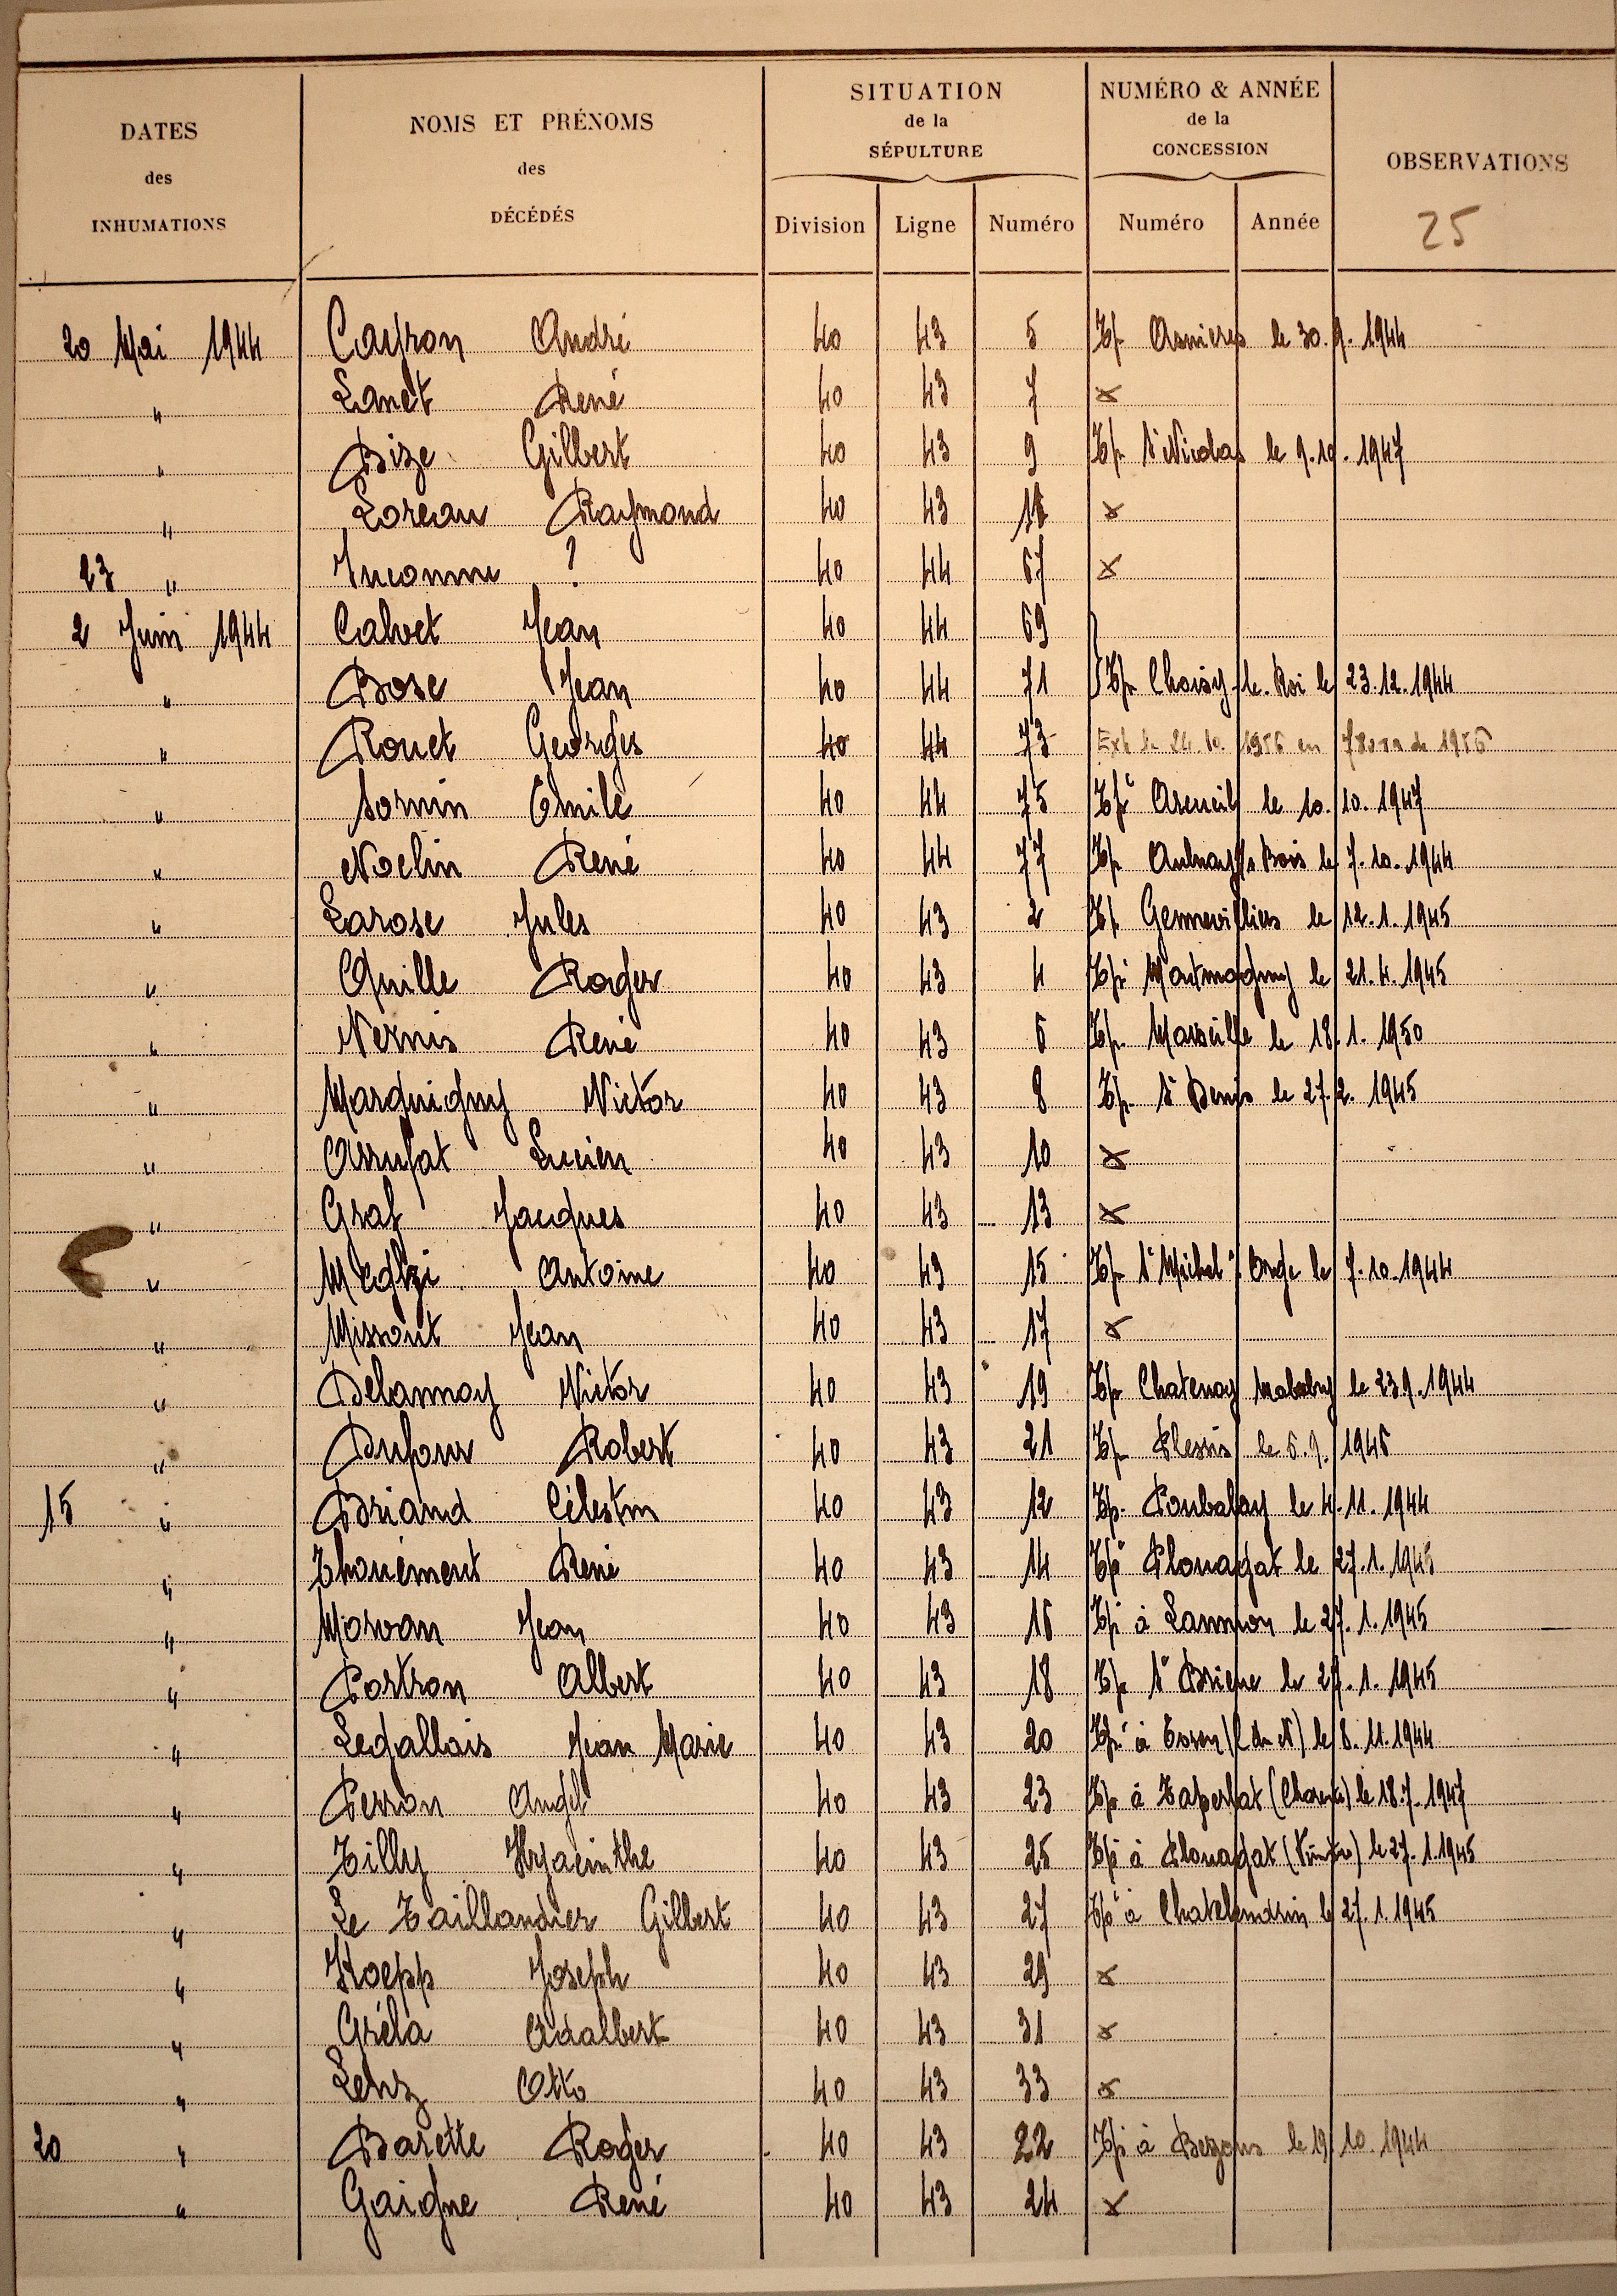 DATES des INHUMATIONS | NOMS ET PRÉNOMS des DÉCÉDÉS | SITUATION de la SÉPULTURE | NUMÉRO & ANNÉE de la CONCESSION | OBSERVATIONS
Division | Ligne | Numéro | Numéro | Année | 25
20 Mai 1944 Cayron André 40 43 5 Tp Asnieres le 30.9.1944
" Lanet René 40 43 7 x
" Bize Gilbert 40 43 9 Tp St Nicolas le 9.10.1947
" Loreau Raymond 40 43 11 x
23 " Inconnu ? 40 44 67 x
2 Juin 1944 Calvet Jean 40 44 69
" Bose Jean 40 44 71 } Tp Choisy-le-Roi le 23.12.1944
" Rouet Georges 40 44 73 Ext le 24.10. 1956 en de 1956
" Sornin Emile 40 44 75 Tpé Arcueil le 10.10.1947
" Noelin René 40 44 77 Tp Aulnay s/s Bois le 7.10.1944
" Larose Jules 40 43 2 Tp Gennevilliers le 12.1.1945
" Quille Roger 40 43 4 Tpé Montmagny le 21.4.1945
" Vernis René 40 43 6 Tp. Marseille le 18.1.1950
" Marquigny Victor 40 43 8 Tp St Denis le 27.2.1945
" Arrufat Lucien 40 43 10 x
" Graf Jacques 40 43 13 x
" Antoine 40 43 15 Tp St Michel s/ Orge le 7.10.1944
" Missout Jean 40 43 17 x
" Delannoy Victor 40 43 19 Tp Chatenay Malabry le 23.9.1944
" Dufour Robert 40 43 21 Tp Plessis le 6.9. 1945
15 " Briand Célestin 40 43 12 Tp. Poubalay le 4.11.1944
" Thouément René 40 43 14 Tpé Plouagat le 27.1.1945
" Morvan Jean 40 43 16 Tpé à Lannion le 27.1.1945
" Portron Albert 40 43 18 Tp St Brieuc le 27.1.1945
" Legallais Jean Marie 40 43 20 Tpé à (C du N) le 8.11.1944
" Perron Angel 40 43 23 Tp à Taponnat (Charente) le 18.7.1947
" Tilly Hyacinthe 40 43 25 Tpé à Plouagat (Finistère) le 27.1.1945
" Le Taillandier Gilbert 40 43 27 Tpé à Chatelaudrin le 27.1.1945
" Koepp Joseph 40 43 29 x
" Gréla Adalbert 40 43 31 x
" Lenz Otto 40 43 33 x
20 " Barette Roger 40 43 22 Tpé à Bezons le 19.10.1944
" Gaigne René 40 43 24 x